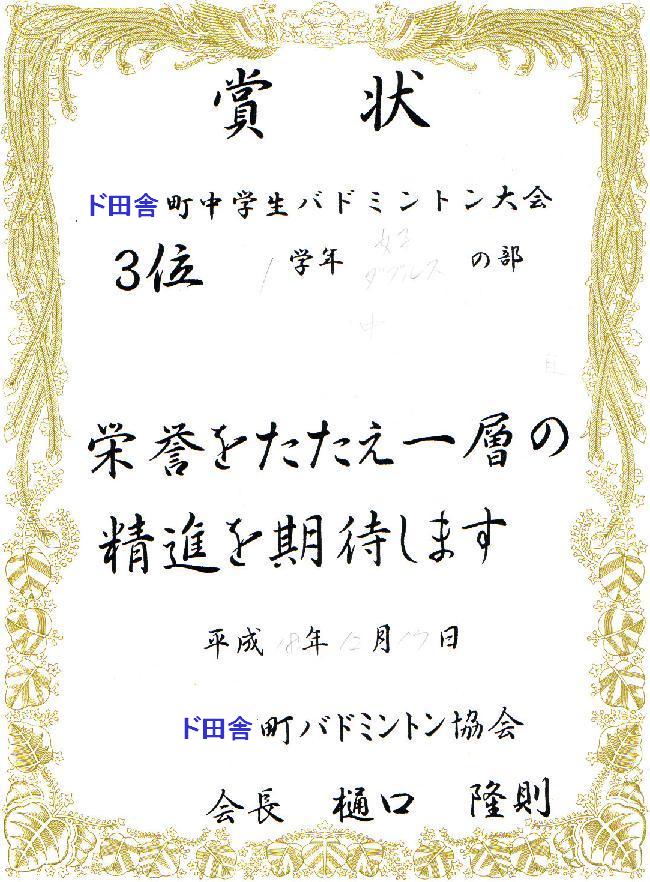 賞状
ド田舎町中学生バドミントン大会
3位 1学年 女子 ダブルス の部
中
栄誉をたたえ一層の
精進を期待します
平成18年12月17日
ド田舎町バドミントン協会
会長 樋口 隆則